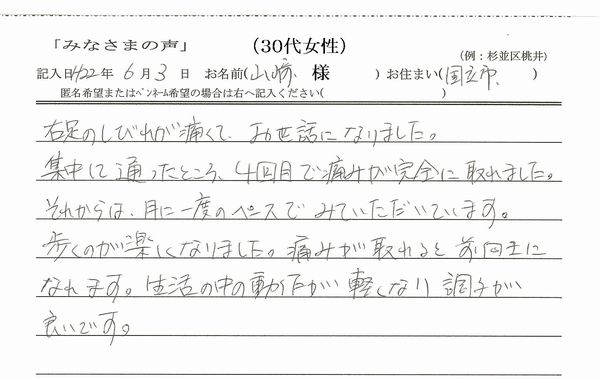 「みなさまの声」 (30代女性)
(例：杉並区桃井)
記入日H22年 6月3日 お名前(山崎 様 ) お住まい(国立市 )
匿名希望またはペンネーム希望の場合は右へ記入ください( )
右足のしびれが痛くて、お世話になりました。
集中して通ったところ、4回目で痛みが完全に取れました。
それからは、月に一度のペースでみていただいています。
歩くのが楽しくなりました。痛みが取れると前向きに
なれます。生活の中の動作が軽くなり調子が
良いです。